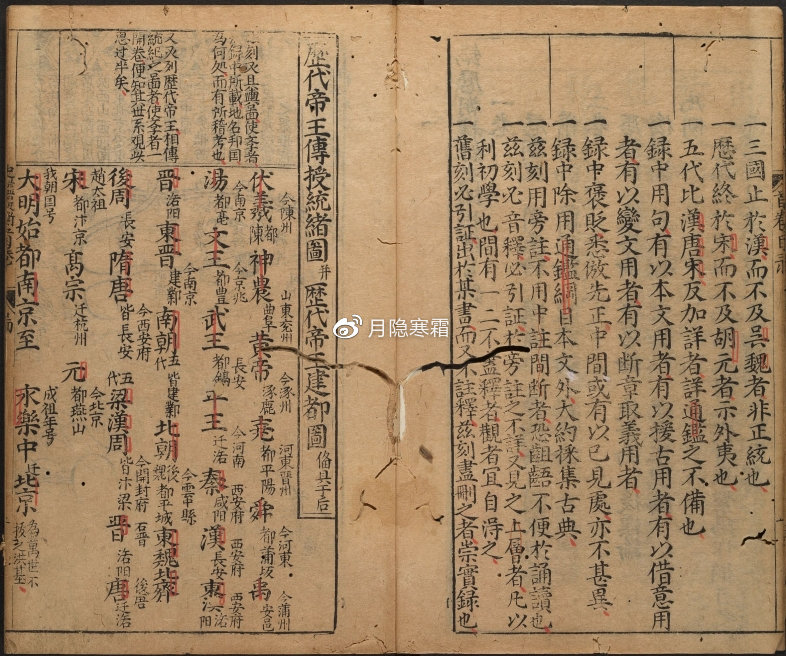 一三國止於漢而不及吳魏者非正統也
一歷代終於宋而不及胡元者示外夷也
一五代比漢唐宋反加詳者詳通鑑之不備也
一錄中用句有以本文用者有以援古用者有以借意用
者有以變文用者有以斷章取義用者
一錄中褒貶悉倣先正中間或有以己見處亦不甚異
一錄中除用通鑑綱目本文外大約採集古典
一茲刻用旁註不用中註間斷者恐齟齬不便於誦讀也
一茲刻必音釋必引証於旁註之不詳又見之上層者凡以
利初學也間有一二不盡釋者觀者宜自淂之
一舊刻必引証出於某書而又不註釋茲刻盡刪之者崇實錄也
歷代帝王傳授統緒圖 并 歷代帝王建都圖 俻具于后
茲刻又具輿啚使孝者
知錄中所載地名邦国
為何処而有所稽考也
又次列歷代帝王相傳
統緒之啚者使孝者一
開卷便知其世系觀㳒
思过半矣
今陳州 山東兖州 今涿州 河東晋州 今河東 今蒲州
伏羲 都陳 神農 曲阜 黃帝 涿鹿 堯 都平陽 舜 都蒲坂 禹 安邑
今南京 今京兆 長安 今河南 西安府 西安府 西安府
湯 都亳 文王 都豐 武王 都鎬 平王 迁洛 秦 咸阳 漢 長安 東漢 洛阳
今南京 今雲中縣
晋 洛阳 東晋 建鄴 南朝 五代 皆建鄴 北朝 後魏 都平城 東魏北齊
今西安府 今開封府 石晋 後唐
後周 長安 隋唐 皆長安 五代 梁漢周 皆汴梁 晋 洛阳 唐 迁洛
趙太祖 今北京
宋 都汴京 高宗 迁杭州 元 都燕山
我朝国号 成祖年号
大明始都南京至 永樂中 迁 北京 為萬世不拔之洪基
月隐寒霜